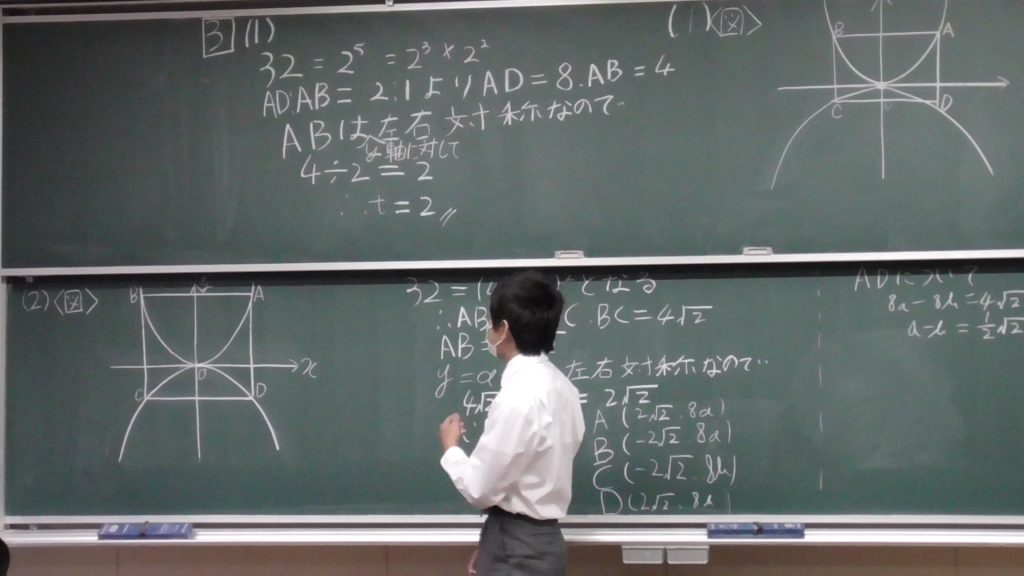 3 (1)
32 = 2⁵ = 2³ × 2²
AD:AB = 2:1 より AD = 8. AB = 4
ABは左右対称なので‥
y軸に対して
4÷2 = 2
∴ t = 2 〃
(1)〈図〉
B A
C D
(2)〈図〉
B A
O x
C D
32 = ( となる
∴ AB C. BC = 4√2
AB
y = a 左右対称なので‥
4√2 = 2√2
A (2√2. 8a)
B (-2√2. 8a)
C (-2√2. 8b)
D (2√2. 8b
ADについて
8a - 8b = 4√2
a - b = 1/2 √2